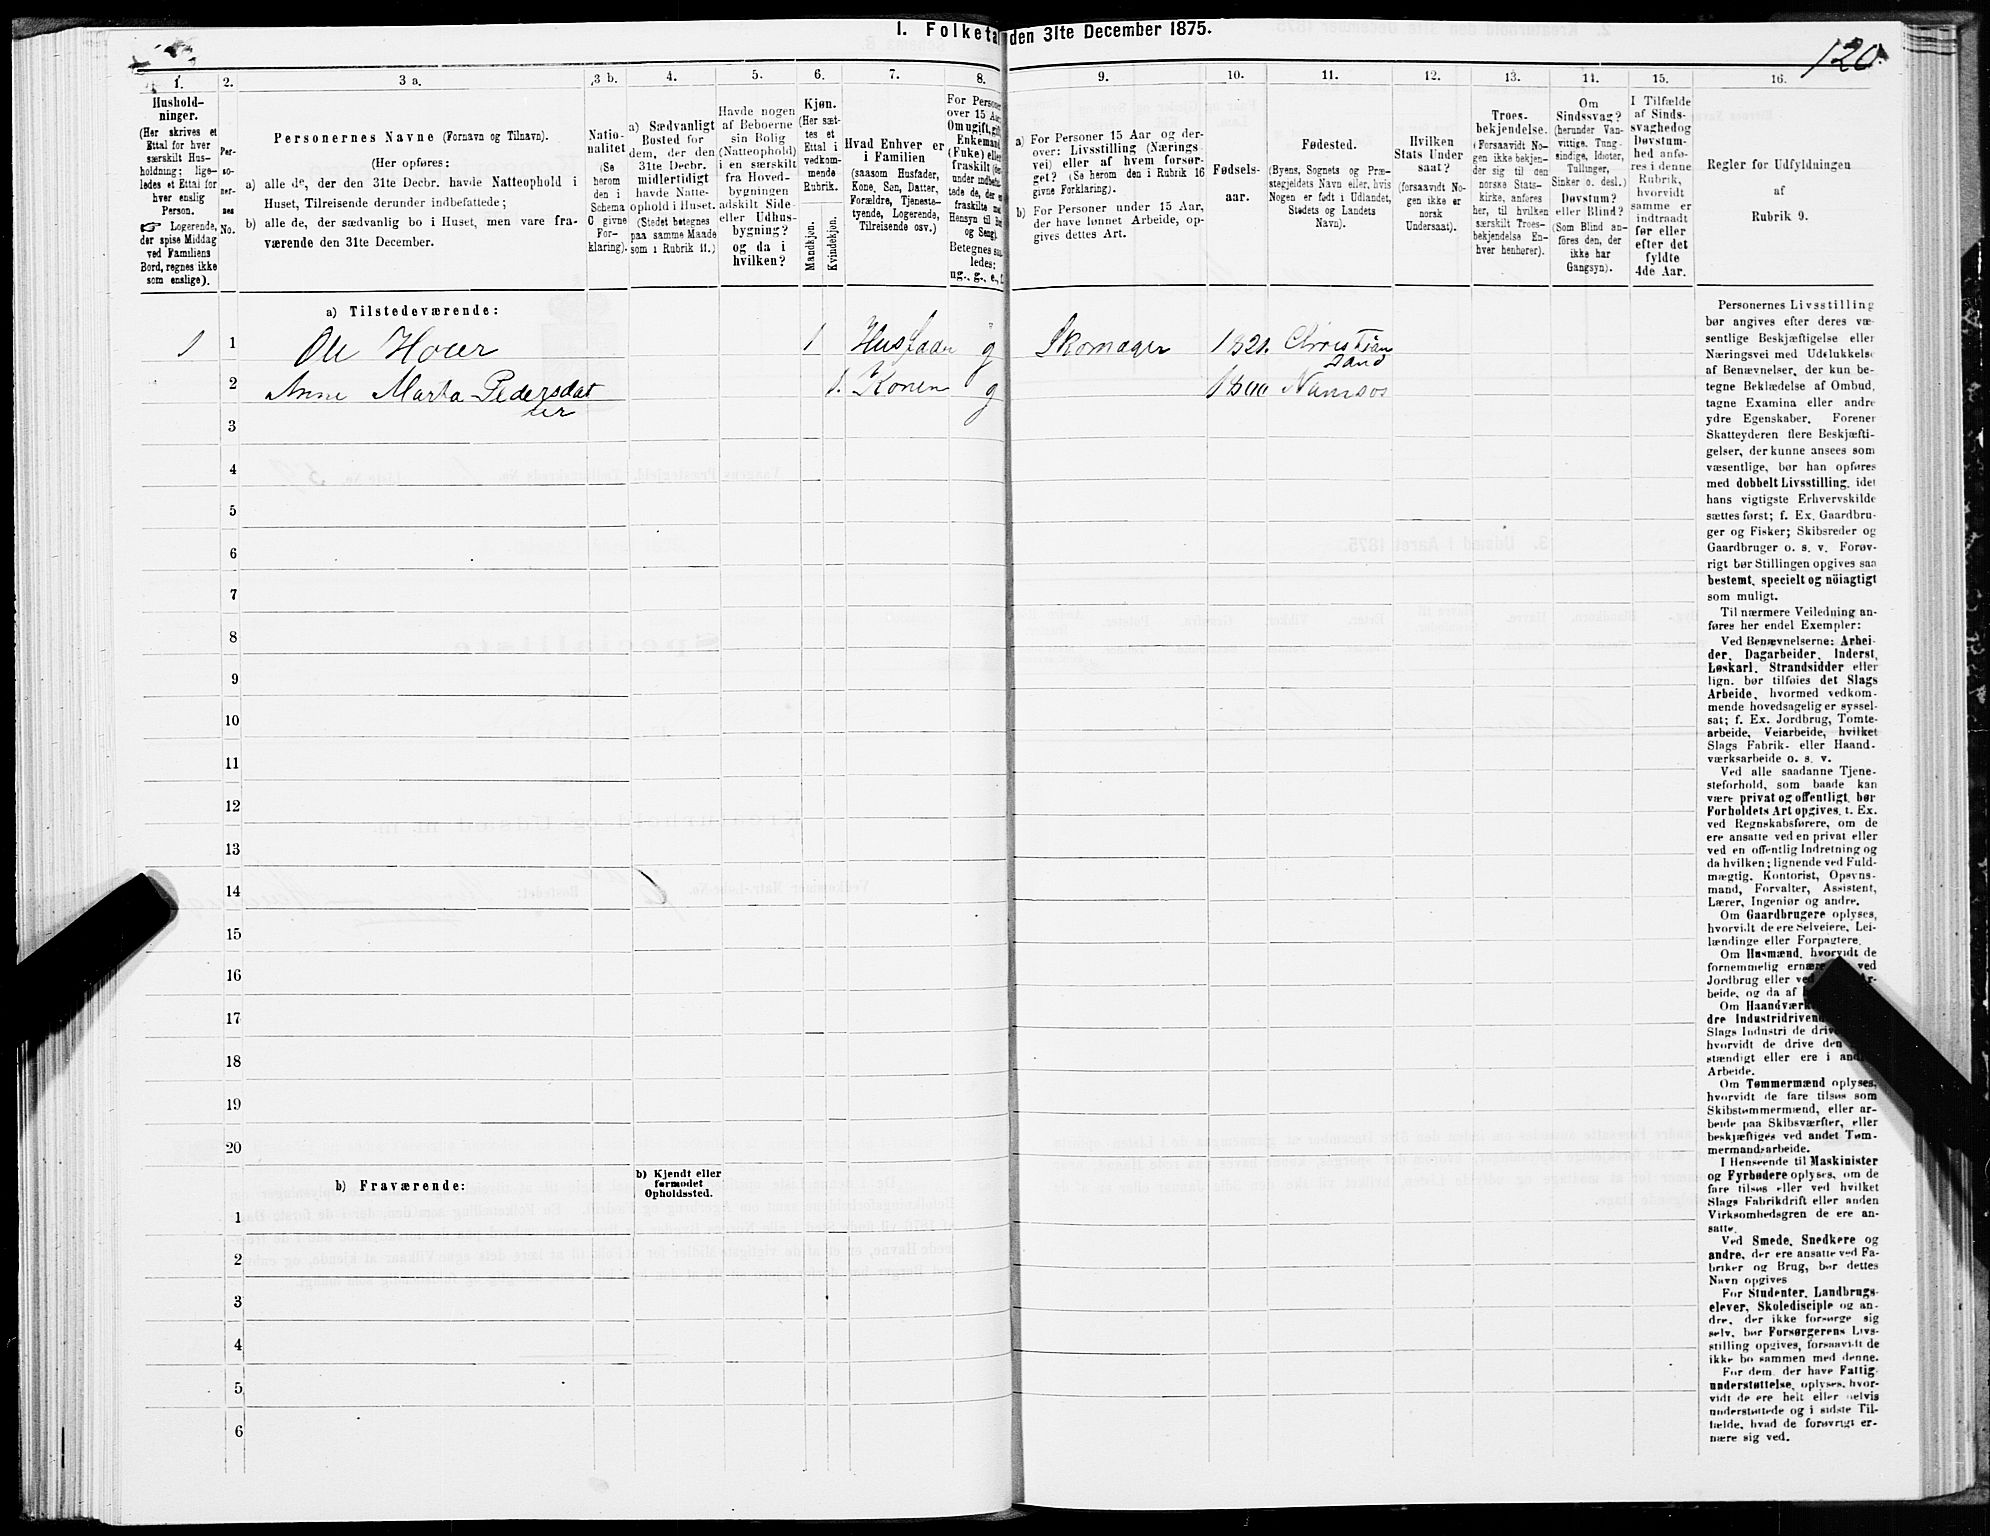 1. Folketa den 31te December 1875.
120
1.
2.
3 a.
3 b.
4.
5.
6.
7.
8.
9.
10.
11.
12.
13.
11.
15.
16.
Hushold-
ninger.
(Her skrives et
Ettal for hver
særskilt Hus-
holdning; lige-
ledes et Ettal for
hver enslig
Person.
☞ Logerende,
der spise Middag
ved Familiens
Bord, regnes ikke
som enslige).
Per-
so-
ner-
nes
No.
Personernes Navne (Fornavn og Tilnavn).
(Her opføres:
a) alle de, der den 31te Decbr. havde Natteophold i
Huset, Tilreisende derunder indbefattede;
b) alle de, der sædvanlig bo i Huset, men vare fra-
værende den 31te December.
Natio-
nalitet
(Se
herom
den i
Schema
G givne
For-
klaring).
a) Sædvanligt
Bosted for
dem, der den
31te Decbr.
midlertidigt
havde Natte-
ophold i Huset.
(Stedet betegnes
paa samme Maade
som i Rubrik 11.)
Havde nogen
af Beboerne
sin Bolig
(Natteophold)
i en særskilt
fra Hoved-
bygningen
adskilt Side-
eller Udhus-
bygning?
og da i
hvilken?
Kjøn.
(Her sæt-
tes et
Ettal i
vedkom-
mende
Rubrik.
Mandkjøn.
Kvindekjøn.
Hvad Enhver er
i Familien
(saasom Husfader,
Kone, Søn, Datter,
Forældre, Tjeneste-
tyende, Logerende,
Tilreisende osv.)
For Personer
over 15 Aar:
Om ugift, gift
Enkemand
(Enke) eller
fraskilt (der-
under indbefat-
tede de, der ere
fraskilte med
Hensyn til Bord
og Seng).
Betegnes saa-
ledes:
ug., g., e.,
a) For Personer 15 Aar og der-
over: Livsstilling (Nærings-
vei) eller af hvem forsør-
get? (Se herom den i Rubrik 16
givne Forklaring).
b) For Personer under 15 Aar,
der have lønnet Arbeide, op-
gives dettes Art.
Fødsels-
aar.
Fødested.
(Byens, Sognets og Præ-
stegjeldets Navn eller, hvis
Nogen er født i Udlandet,
Stedets og Landets
Navn).
Hvilken
Stats Under
saat?
(forsaavidt No-
gen ikke er
norsk
Undersaat).
Troes-
bekjendelse.
(Forsaavidt No-
gen ikke bekjen-
der sig til den
norske Stats-
kirke, anføres
her, til hvilken
særskilt Troes-
bekjendelse En-
hver henhører).
Om
Sindssvag?
(herunder Van-
vittige, Tung-
sindige, Idioter,
Tullinger,
Sinker o. desl.)
Døvstum?
eller Blind?
(Som Blind an-
føres den, der
ikke har
Gangsyn).
I Tilfælde
af Sinds-
svaghed og
Døvstum-
hed anfø-
res i denne
Rubrik,
hvorvidt
samme er
indtraadt
før eller
efter det
fyldte
4de Aar.
Regler for Udfyldningen
af
Rubrik 9.
a) Tilstedeværende:
1 1 Ole Hoier 1 Husfader g Skomager 1821. Christian
sand
2 Anne Marta Pedersdat
ter 1. Konen g Namsos
3
4
5
6
7
8
9
10
11
12
13
14
15
16
17
18
19
20
b) Fraværende:
b) Kjendt eller
formodet
Opholdssted.
1
2
3
4
5
6
Personernes Livsstilling
bør angives efter deres væ-
sentlige Beskjæftigelse eller
Næringsvei med Udelukkelse
af Benævnelser, der kun be-
tegne Beklædelse af Ombud,
tagne Examina eller andre
ydre Egenskaber. Forener
Skatteyderen flere Beskjæfti-
gelser, der kunne ansees som
væsentlige, bør han opføres
med dobbelt Livsstilling, idet
hans vigtigste Erhvervskilde
sættes først; f. Ex. Gaardbru-
ger og Fisker; Skibsreder og
Gaardbruger o. s. v. Forøv-
rigt bør Stillingen opgives saa
bestemt, specielt og nöiagtigt
som muligt.
Til nærmere Veiledning an-
føres her endel Exempler:
Ved Benævnelserne: Arbei-
der, Dagarbeider, Inderst,
Løskarl, Strandsidder eller
lign. bør tilføies det Slags
Arbeide, hvormed vedkom-
mende hovedsagelig er syssel-
sat; f. Ex. Jordbrug, Tomte-
arbeide, Veiarbeide, hvilket
Slags Fabrik- eller Haand-
værksarbeide o. s. v.
Ved alle saadanne Tjene-
steforhold, som baade kan
være privat og offentligt, bør
Forholdets Art opgives, t. Ex.
ved Regnskabsførere, om de
ere ansatte ved en privat eller
ved en offentlig Indretning og
da hvilken; lignende ved Fuld-
mægtig, Kontorist, Opsyns-
mand, Forvalter, Assistent,
Lærer, Ingeniør og andre.
Om Gaardbrugere oplyses,
hvorvidt de ere Selveiere, Lei-
lændinge eller Forpagtere.
Om Husmænd, hvorvidt de
fornemmelig ernære ved
Jordbrug eller ved Ar-
beide, og da af
Om Haandværk
dre Industridrivende
Slags Industri de drive
hvorvidt de drive den
stændigt eller ere i andres
Arbeide.
Om Tømmermænd oplyses,
hvorvidt de fare tilsøs som
Skibstømmermænd, eller ar-
beide paa Skibsværfter, eller
beskjæftiges ved andet Tøm-
mermandsarbeide.
I Henseende til Maskinister
og Fyrbødere oplyses, om de
fare tilsøs eller ved hvilket
Slags Fabrikdrift eller anden
Virksomhedsgren de ere an-
satte.
Ved Smede, Snedkere og
andre, der ere ansatte ved Fa-
briker og Brug, bør dettes
Navn opgives
For Studenter, Landbrugs-
elever, Skoledisciple og an-
dre, der ikke forsørge sig
selv, bør Forsørgerens Livs-
stilling opgives, forsaavidt de
ikke bo sammen med denne.
For dem, der have Fattig-
understøttelse, oplyses, hvor-
vidt de ere helt eller delvis
understøttede og i sidste Til-
fælde, hvad de forøvrigt er-
nære sig ved.